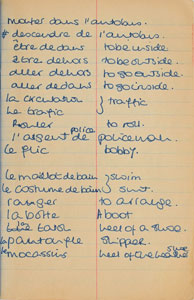 monter dans l'autobus.
descendre de l'autobus.
être dedans to be inside.
être dehors to be outside.
aller dehors to go outside.
aller dedans to go inside.
la circulation } traffic
le trafic
rouler to roll.
l'argent de police policeman.
le flic bobby.
le maillot de bain } swim
le costume de bain } suit.
ranger to arrange.
la botte A boot
heel of a shoe.
pantoufle slipper.
le mocassins heel of the leather shoe